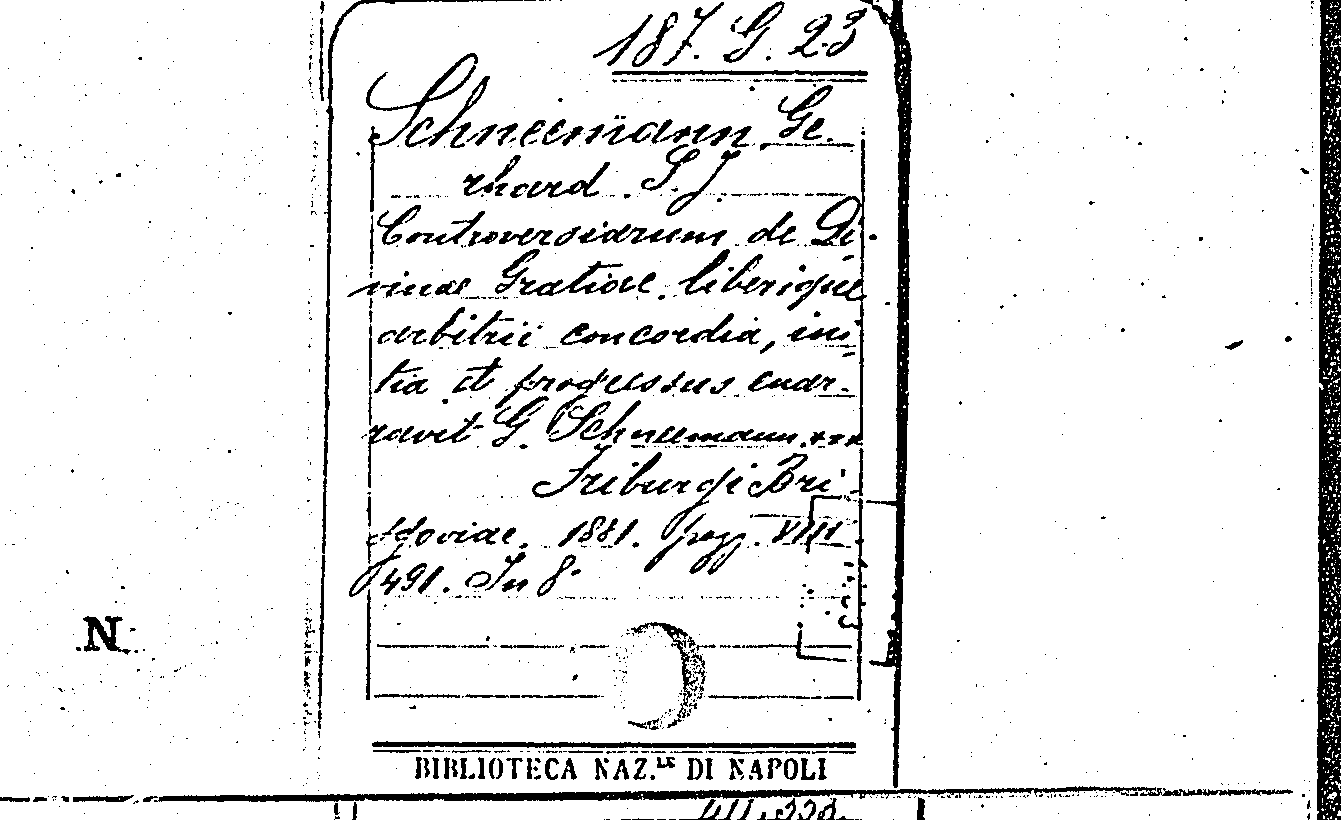 187. G. 23
Schneemann Ge-
rhard S. J.
Controversiarum de Di-
vinae Gratiae liberique
arbitrii concordia, ini-
tia et progressus enar-
ravit G. Schneemann ***
Friburgi Bri-
sgoviae. 1881. pagg. VIII
491. In 8°
N
BIBLIOTECA NAZ.LE DI NAPOLI